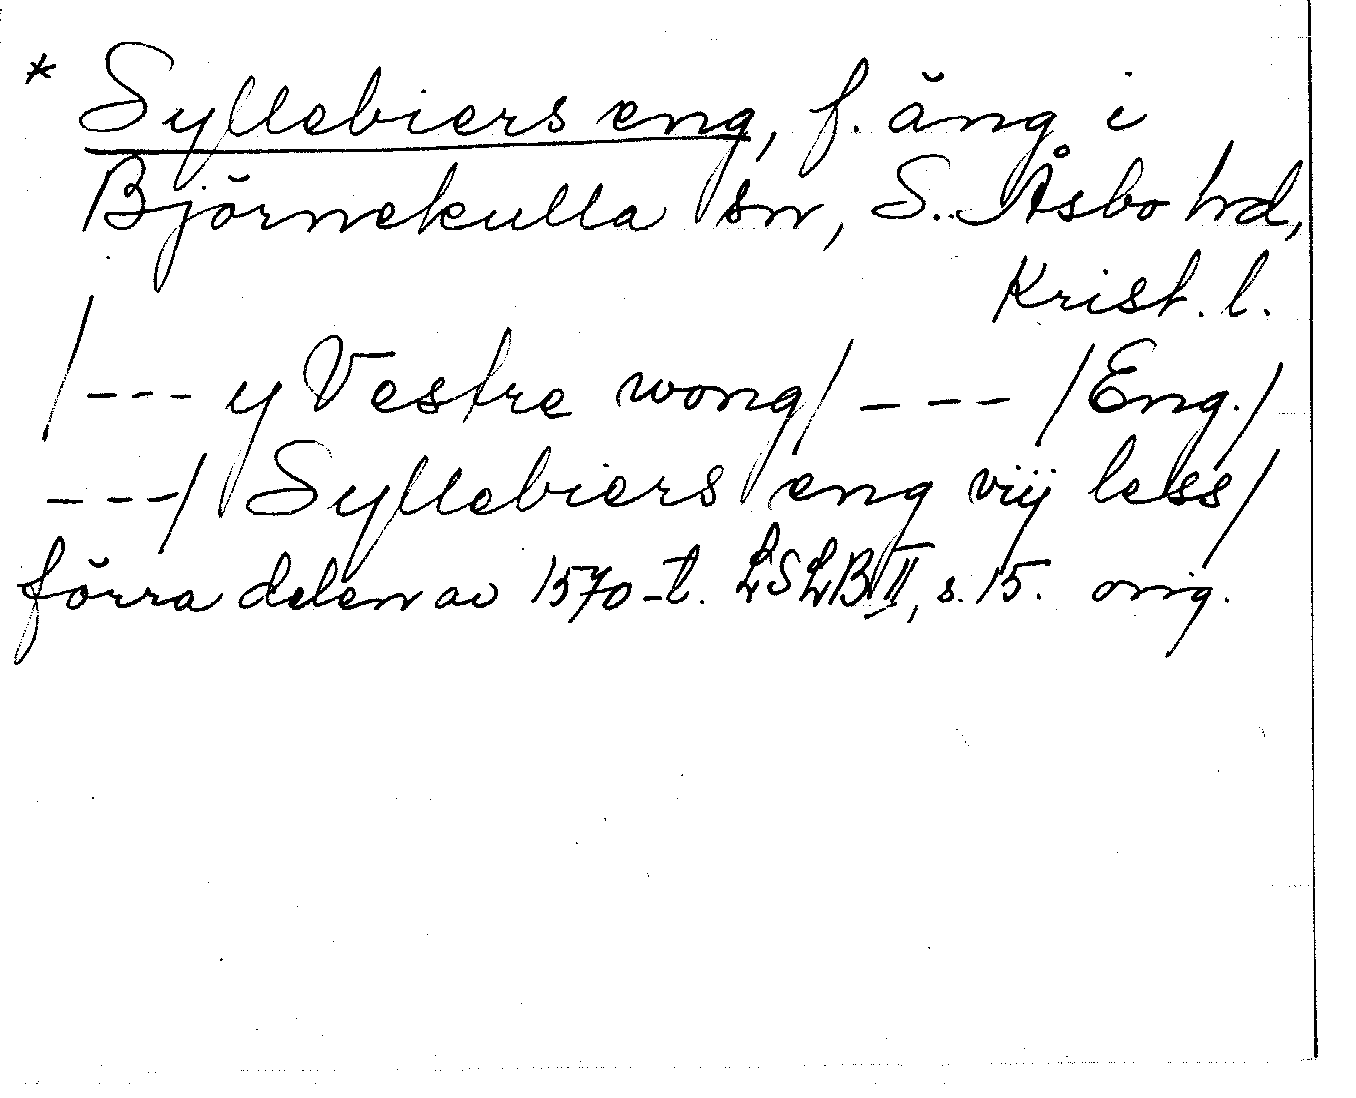 * Syllebiers eng, f. äng i
Björnekulla sn, S. Åsbo hd,
Krist. l.
/--- y Vestre wong/ --- /Eng./
---/ Syllebiers eng viij less/
förra delen av 1570-t. LSLB II, s. 15. orig.